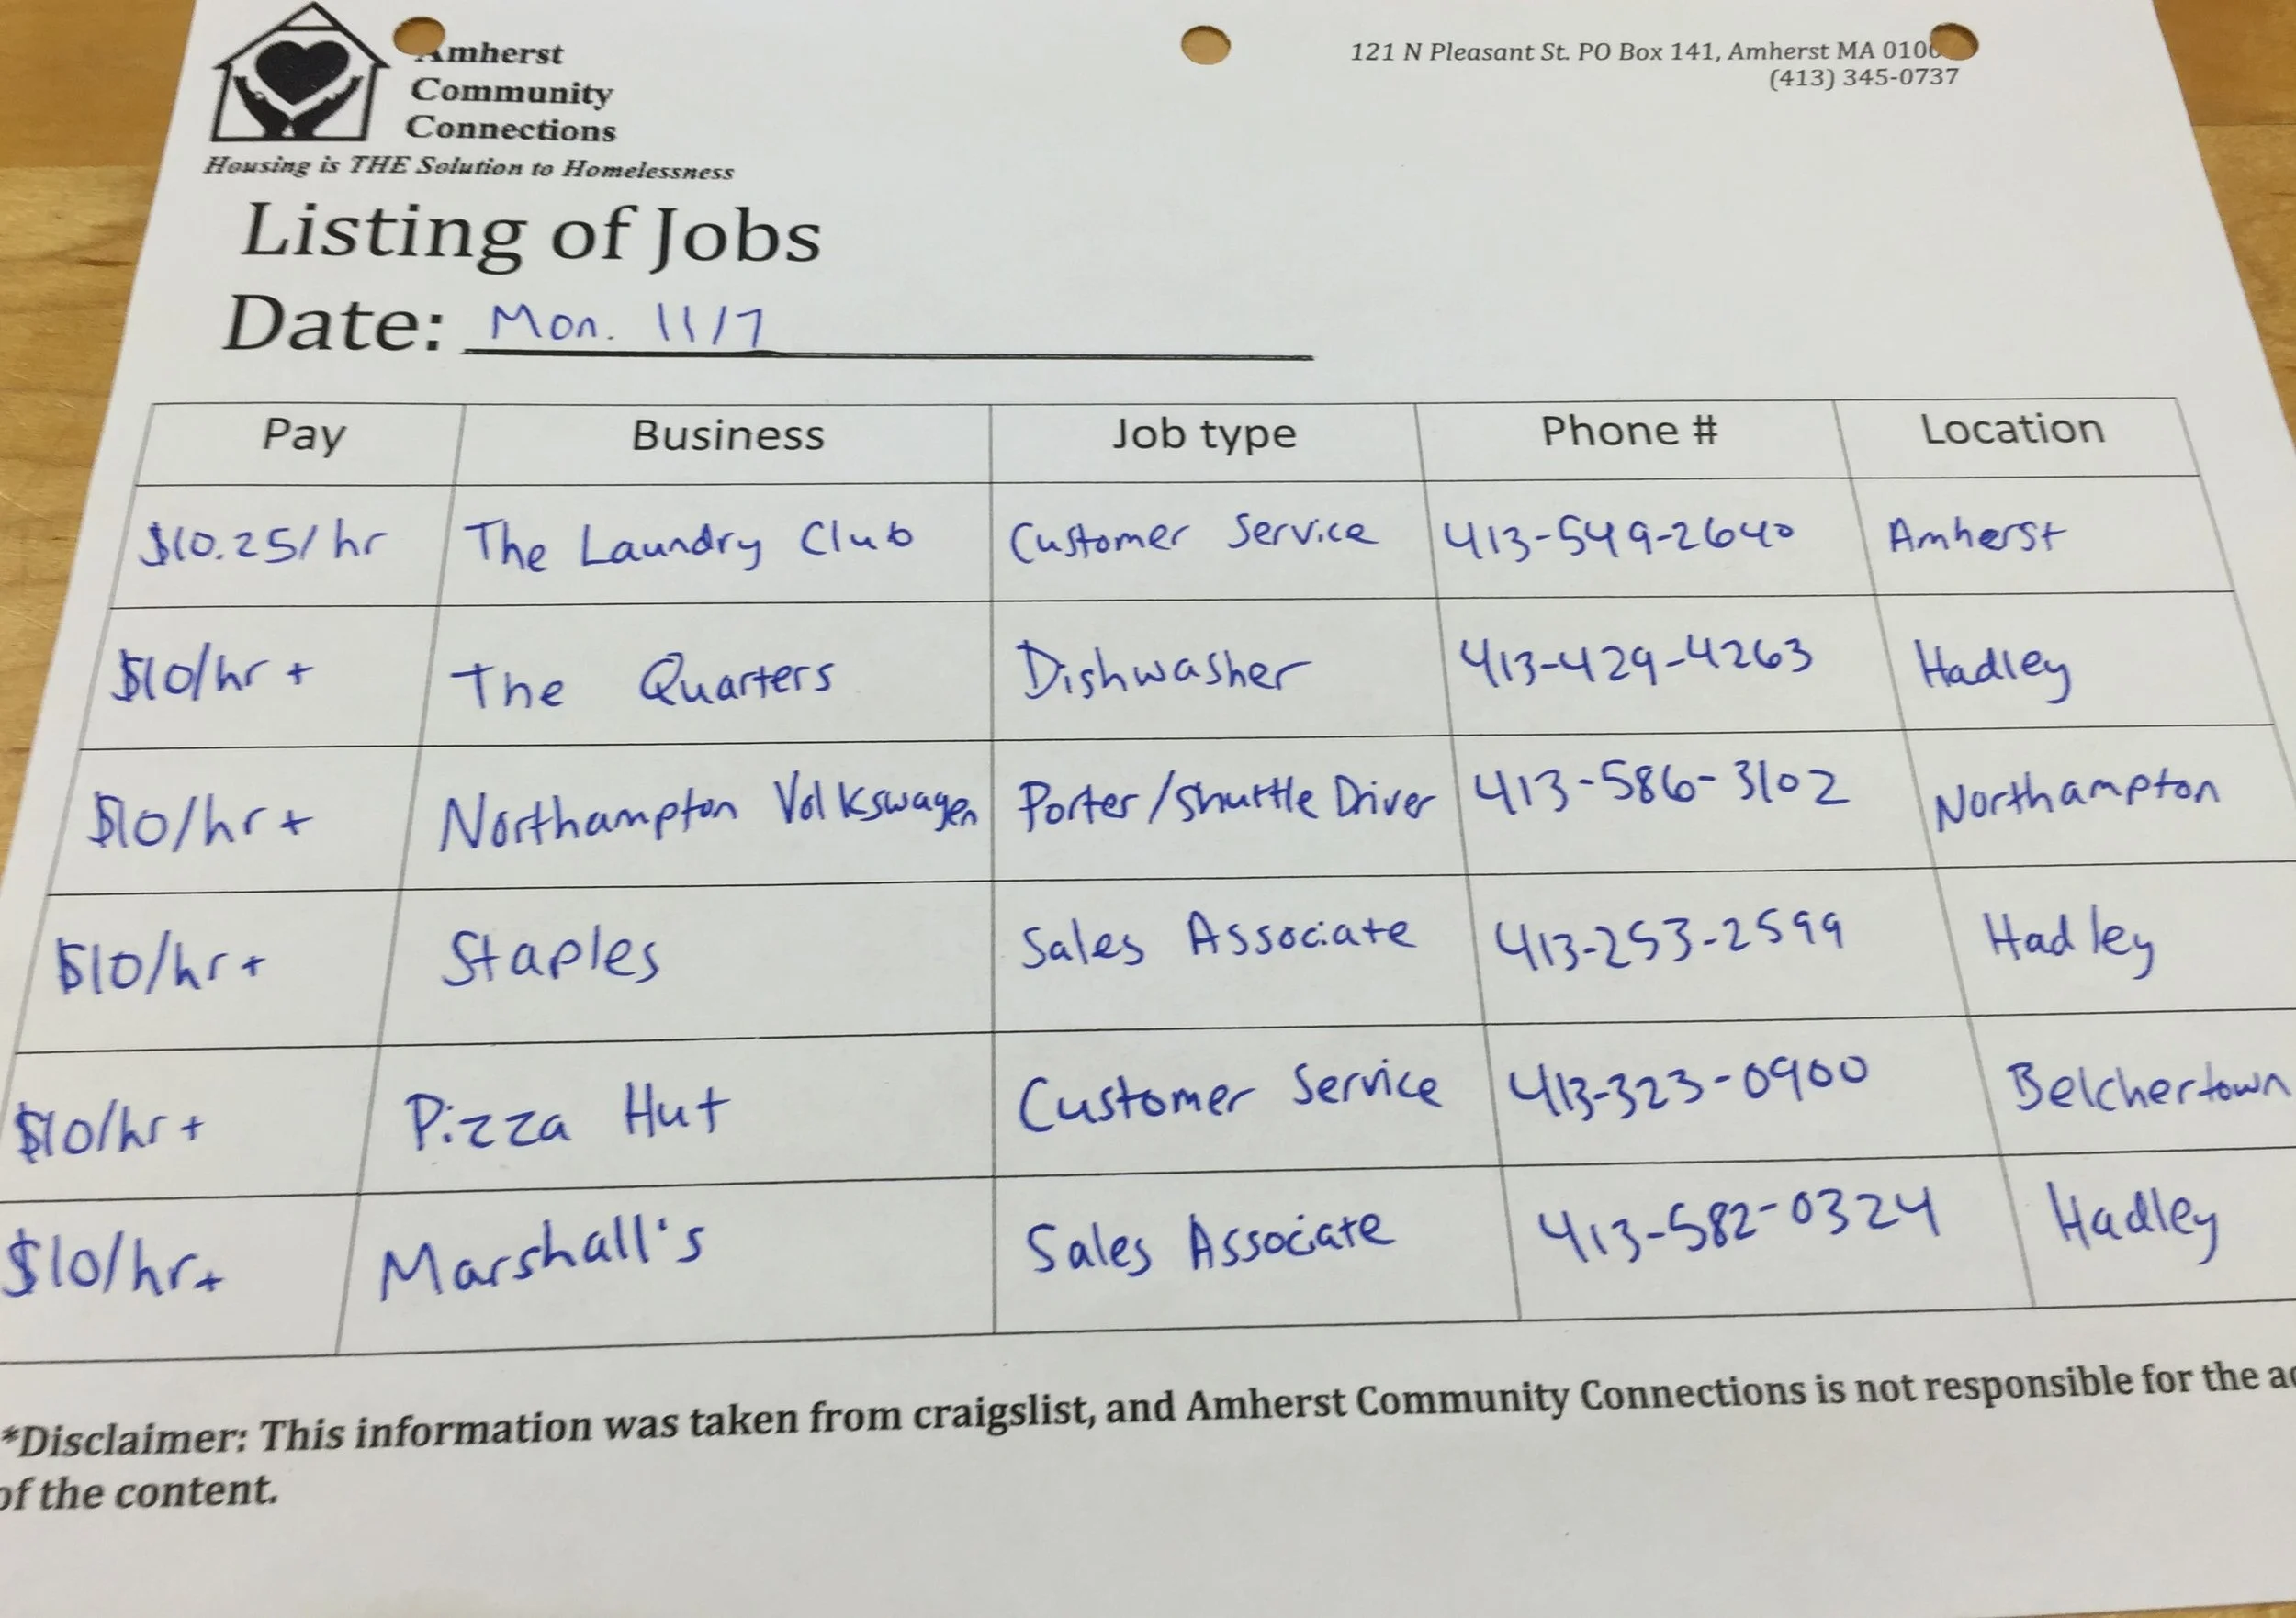 Amherst
Community
Connections
Housing is THE Solution to Homelessness
121 N Pleasant St. PO Box 141, Amherst MA
(413) 345-0737
Listing of Jobs
Date: Mon. 11/7
Pay Business Job type Phone # Location
$10.25/hr The Laundry Club Customer Service 413-549-2640 Amherst
$10/hr + The Quarters Dishwasher 413-429-4263 Hadley
$10/hr + Northampton Volkswagen Porter/Shuttle Driver 413-586-3102 Northampton
$10/hr + Staples Sales Associate 413-253-2599 Hadley
$10/hr + Pizza Hut Customer Service 413-323-0900 Belchertown
$10/hr + Marshall's Sales Associate 413-582-0324 Hadley
*Disclaimer: This information was taken from craigslist, and Amherst Community Connections is not responsible for the
of the content.